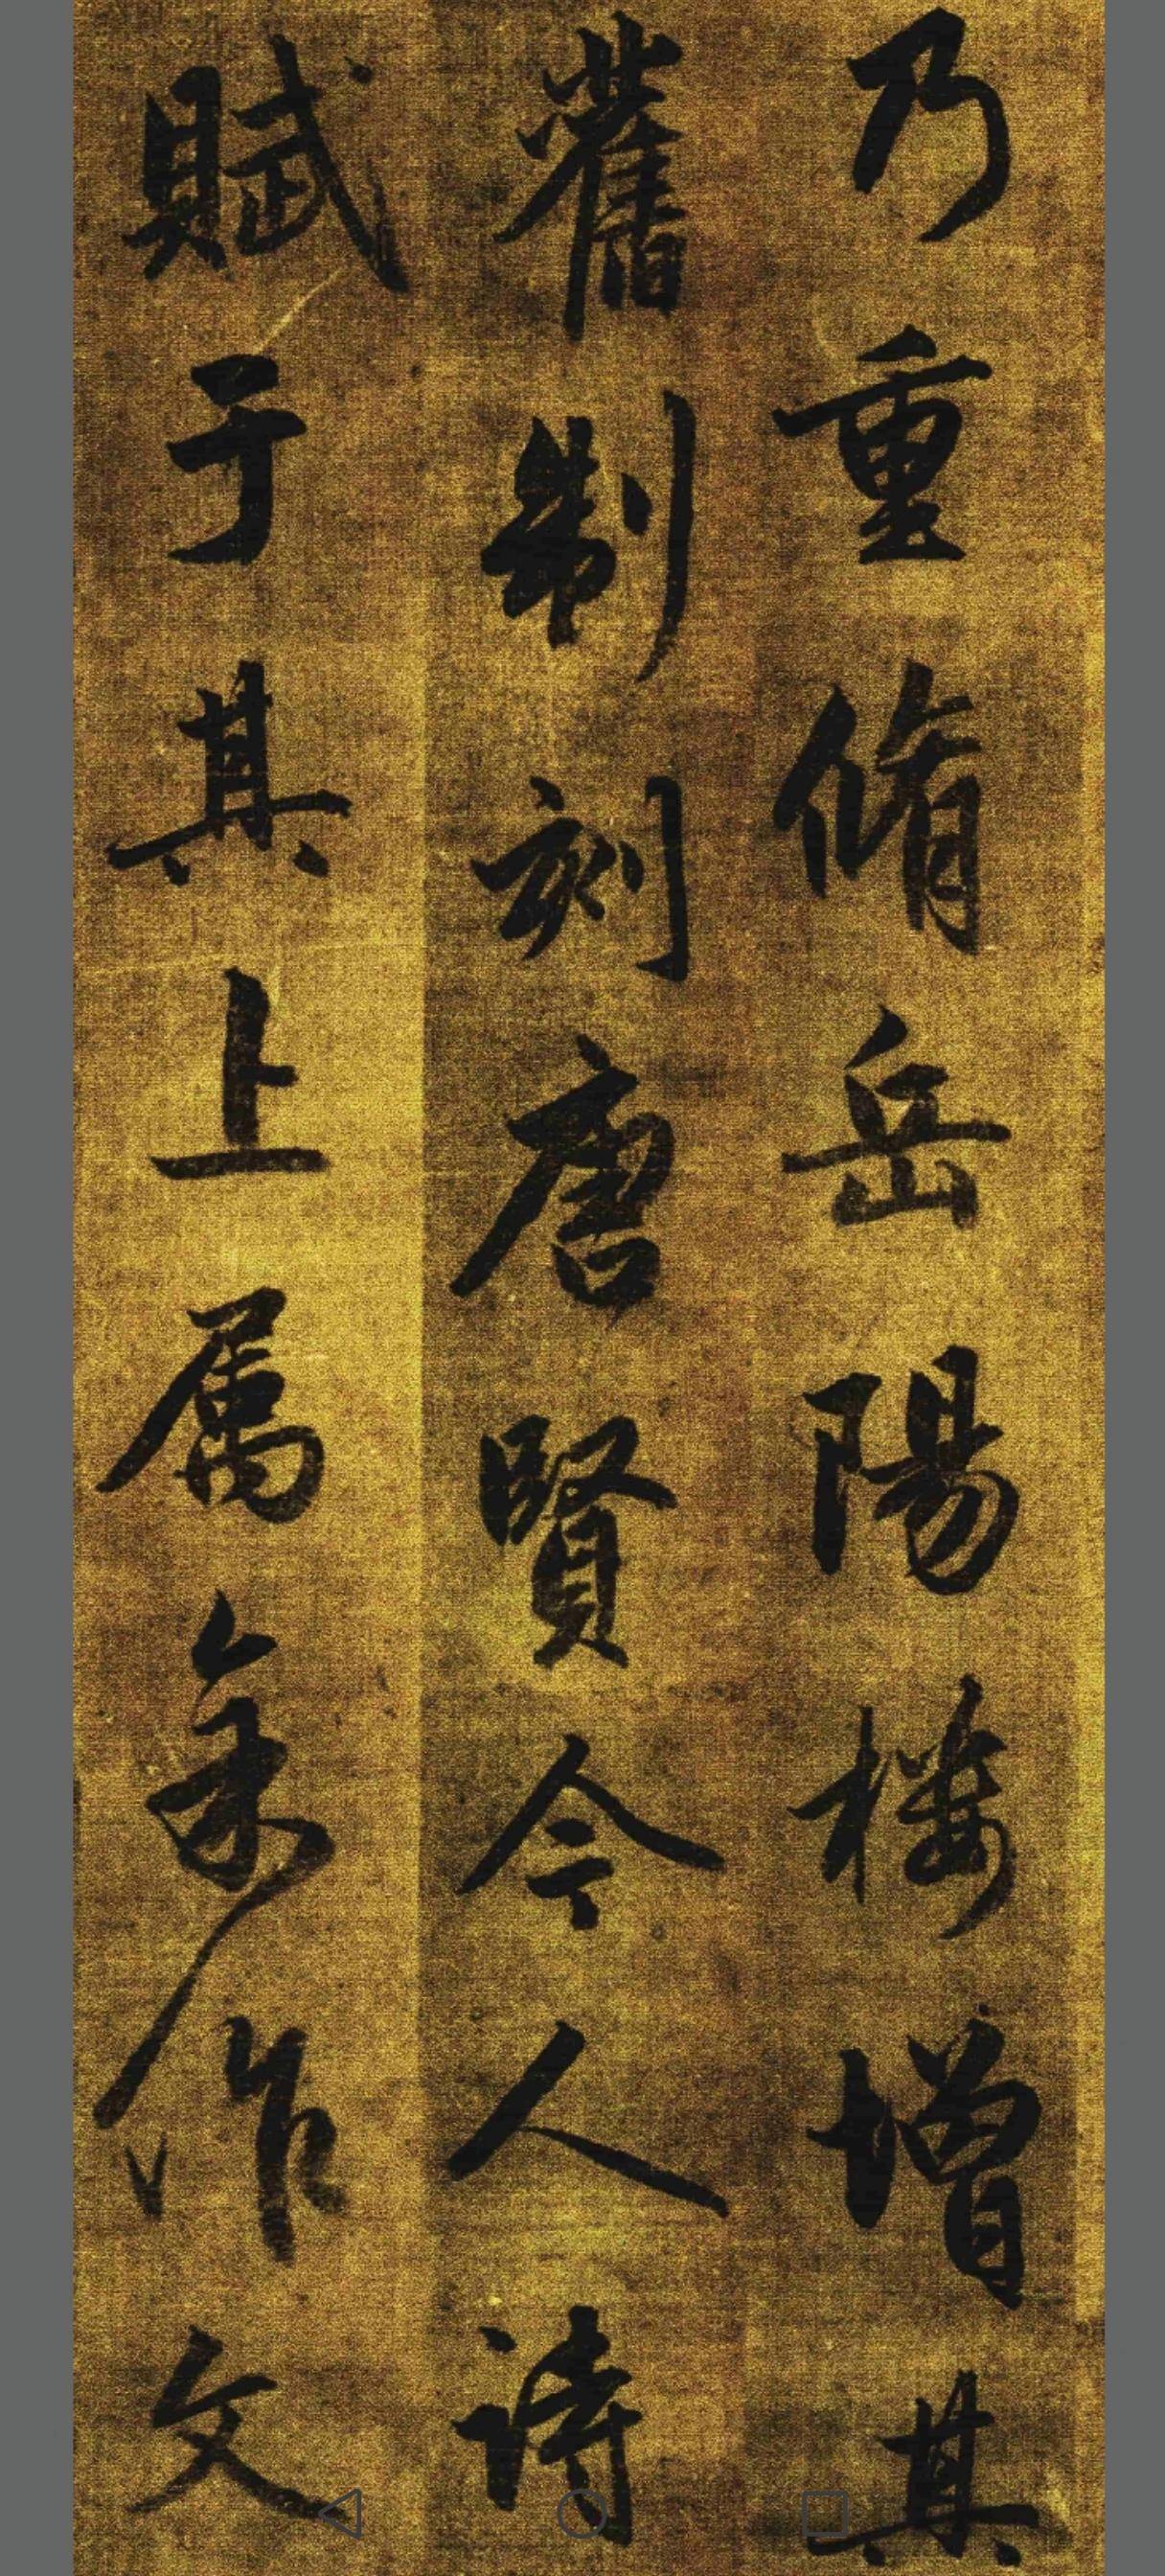 乃重脩岳陽樓增其
舊制刻唐賢今人詩
賦于其上属余作文